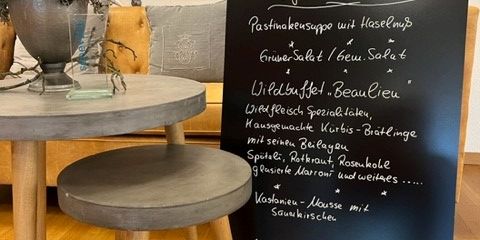 Pastinakensuppe mit Haselnuß
Grüner Salat / Gem. Salat
Wildbuffet „Beaulieu"
Wildfleisch Spezialitäten,
Hausgemachte Kürbis-Brätlinge
mit seinen Beilagen
Spätzli, Rotkraut, Rosenkohl
glasierte Marroni und weiteres .....
Kastanien - Mousse mit
Sauerkirschen